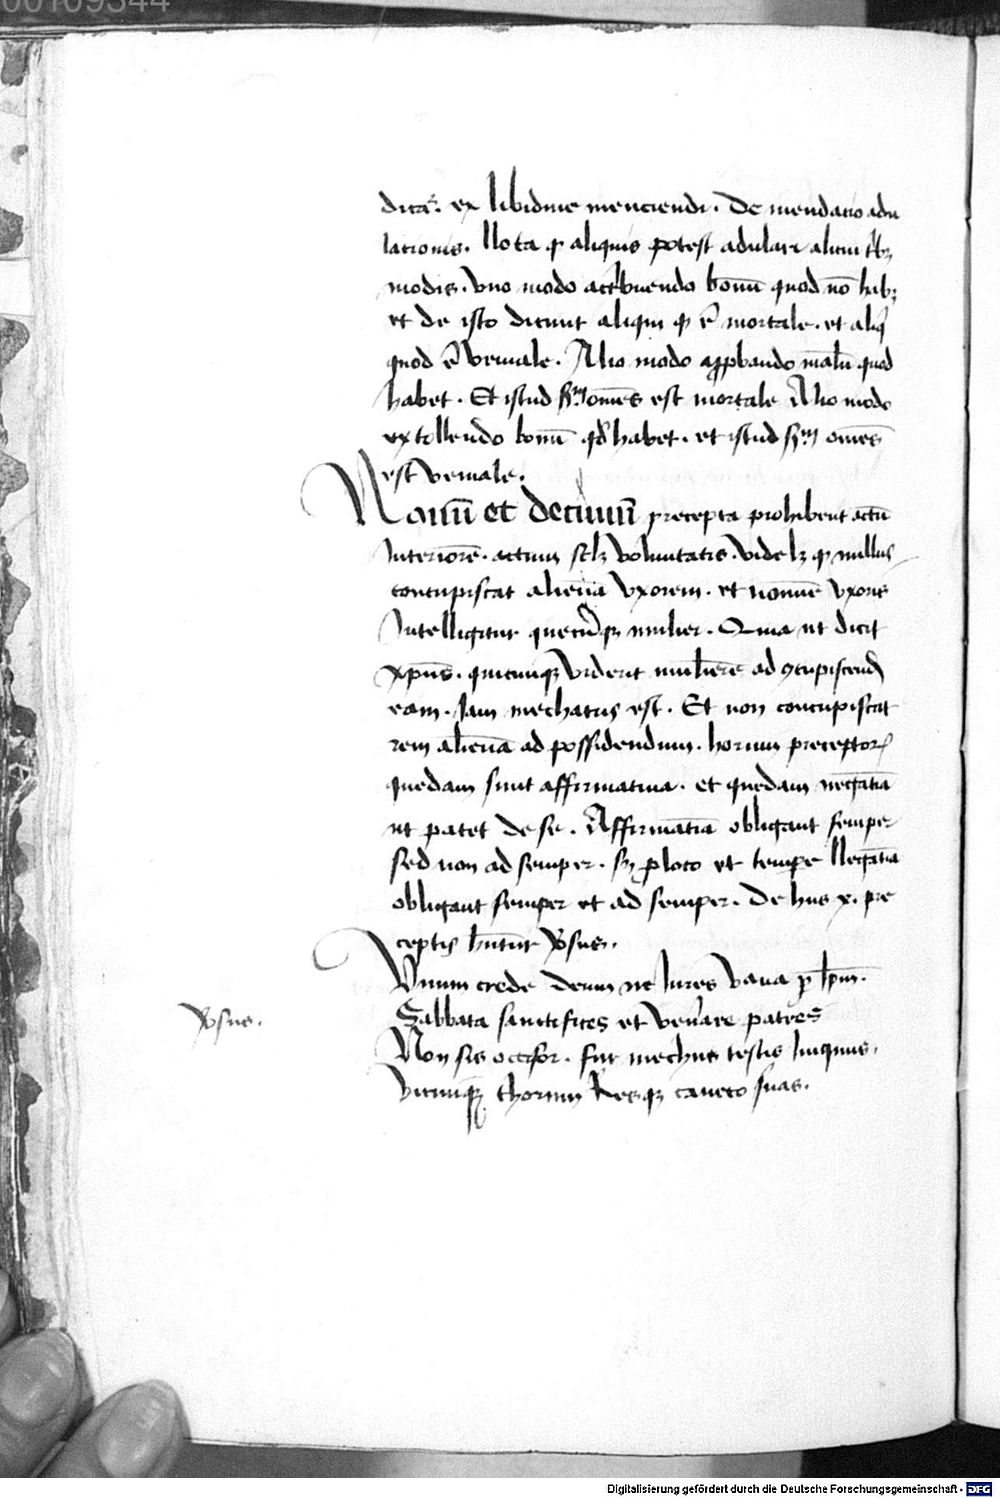 00109344
dicatʳ. ex libidine menciendi. De mendacio adu
lationis. Nota ꝙ aliquis potest adulari alicui tribꝫ
modis. vno modo attribuendo bonū quod nō habꝫ
et de isto dicunt aliqui ꝙ ē mortale. et aliqͥ
quod ē veniale. Alio modo approbando malū quod
habet. Et istud sᵐ omēs est mortale Alio modo
extollendo bonū qd̄ habet. et istud sᵐ omēs
est veniale.
Nonū et decimū precepta prohibent actū
Interiorē. actum scilꝫ voluntatis. videlꝫ ꝙ nullus
concupiscat alienā vxorem. et nomine vxoris
Intelligitur quecūqꝫ mulier. Quia ut dicit
xp̄us. quicunqꝫ viderit mulierē ad ꝯcupiscend
eam. Iam mechatus est. Et non concupiscat
rem alienā ad possidendum. horum preceptorꝝ
quedam sunt affirmatiua. et quedam negatīa
ut patet de se. Affirmatīa obligant semper
sed non ad semper. sꝫ ꝓ loco et tempore Negatīa
obligant semper et ad semper. De hiis x. pre
ceptis habentur Versus.
Vnum crede deum ne iures vana per ip̄m.
Sabbata sanctifices et venerare patres
Versus.
Non sis occisor. fur mechus testis iniquus.
Vicinuqꝫ thorum Resqꝫ caueto suas.
Digitalisierung gefördert durch die Deutsche Forschungsgemeinschaft - DFG